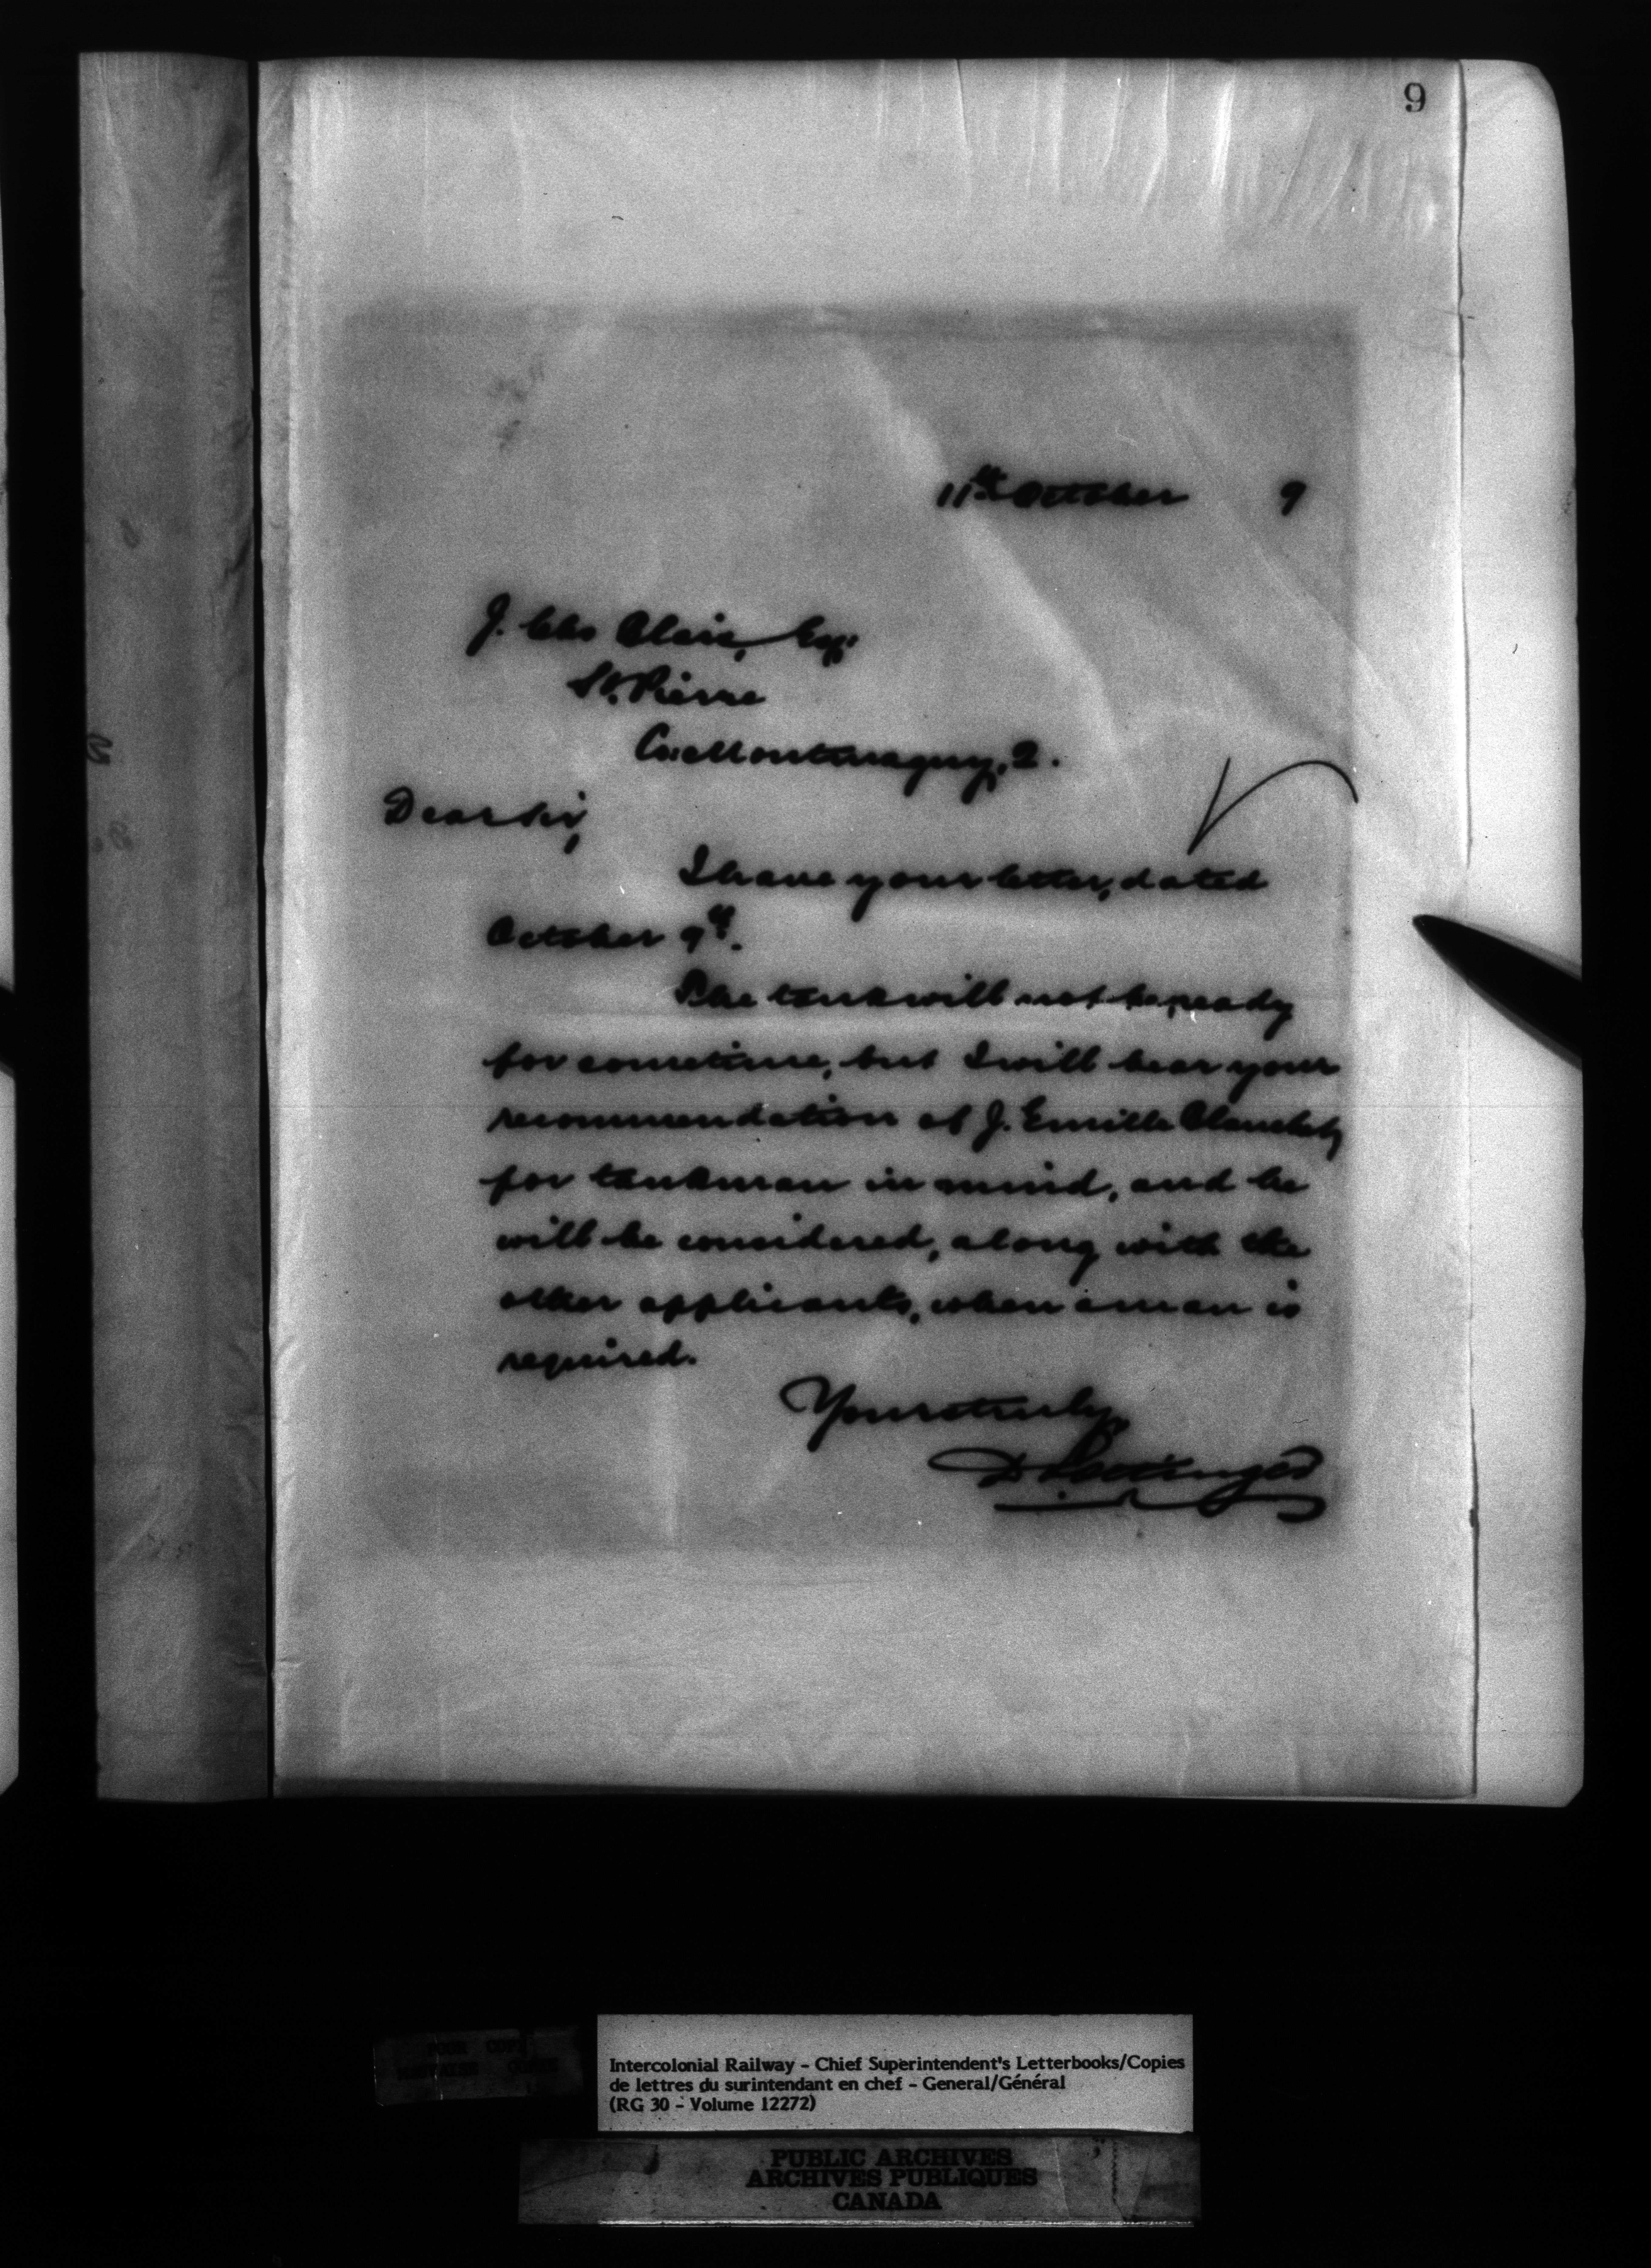 9
11th October 9
J. Chs Blais, Esq.
St. Pierre
Co: Montmagny, 2.
Dear Sir,
I have your letter, dated
October 9th.
The tank will not be ready
for sometime, but I will bear your
recommendation of J. Emille Blanchet,
for tankman in mind, and he
will be considered, along with the
other applicants, when a man is
required.
Yours truly,
D Pottinger
POOR COPY
MAUVAISE COPIE
Intercolonial Railway - Chief Superintendent's Letterbooks/Copies
de lettres du surintendant en chef - General/Général
(RG 30 - Volume 12272)
PUBLIC ARCHIVES
ARCHIVES PUBLIQUES
CANADA